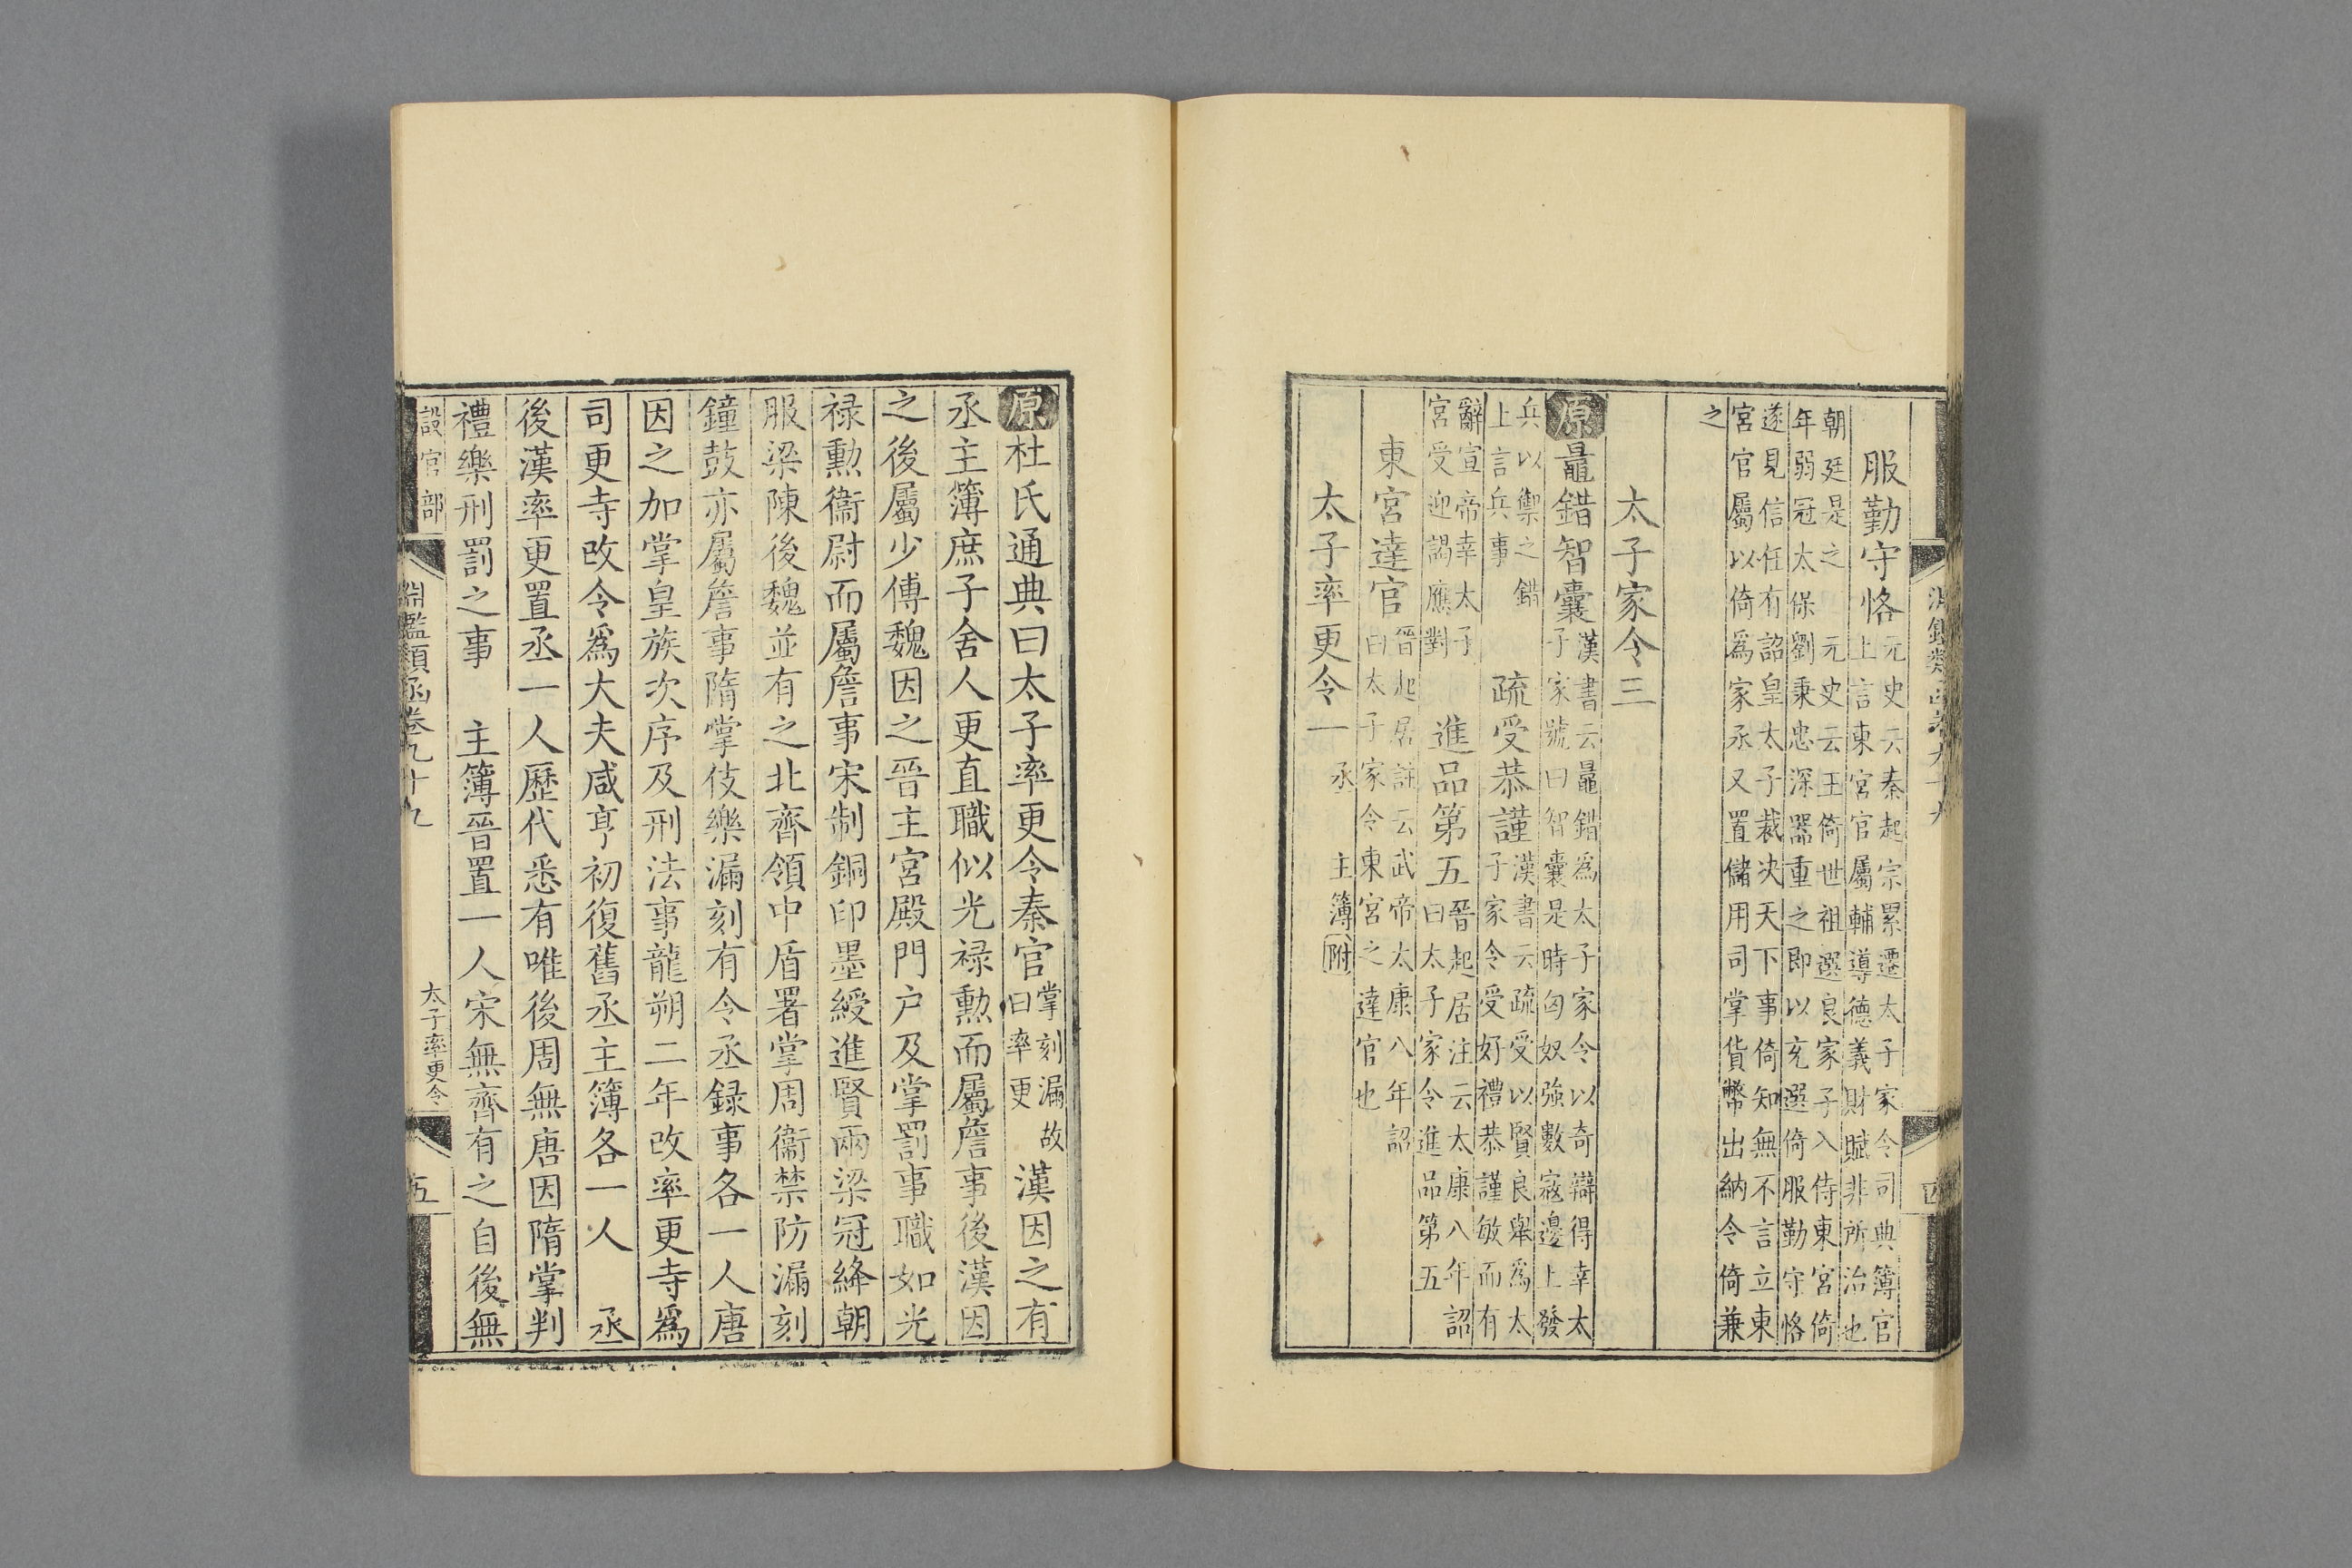 服勤守恪元史云秦起宗累遷太子家令司典簿官
上言東宮官屬輔導德義財賦非所治也
朝廷是之　元史云王倚世祖選良家子入侍東宮倚
年弱冠太保劉秉忠深器重之即以充選倚服勤守恪
遂見信任有詔皇太子裁决天下事倚知無不言立東
宮官屬以倚爲家丞又置儲用司掌貨幣出納令倚兼
之
太子家令三
原鼂錯智囊漢書云鼂錯爲太子家令以奇辯得幸太
子家號曰智囊是時匈奴強數寇邊上發
兵以禦之錯
上言兵事
疏受恭謹漢書云疏受以賢良舉爲太
子家令受好禮恭謹敏而有
辭宣帝幸太子
宮受迎謁應對
進品第五晉起居注云太康八年詔
曰太子家令進品第五
東宮達官晉起居註云武帝太康八年詔
曰太子家令東宮之達官也
太子率更令一丞　主簿附
原杜氏通典曰太子率更令秦官掌刻漏故
曰率更
漢因之有
丞主簿庶子舍人更直職似光禄勲而屬詹事後漢因
之後屬少傅魏因之晉主宮殿門户及掌罰事職如光
禄勲衞尉而屬詹事宋制銅印墨綬進賢兩梁冠絳朝
服梁陳後魏並有之北齊領中盾署掌周衞禁防漏刻
鐘鼓亦屬詹事隋掌伎樂漏刻有令丞録事各一人唐
因之加掌皇族次序及刑法事龍朔二年改率更寺爲
司更寺改令爲大夫咸亨初復舊丞主簿各一人　丞
後漢率更置丞一人歷代悉有唯後周無唐因隋掌判
禮樂刑罰之事　主簿晉置一人宋無齊有之自後無
設官部
淵鑑類函卷九十九
太子率更令
五